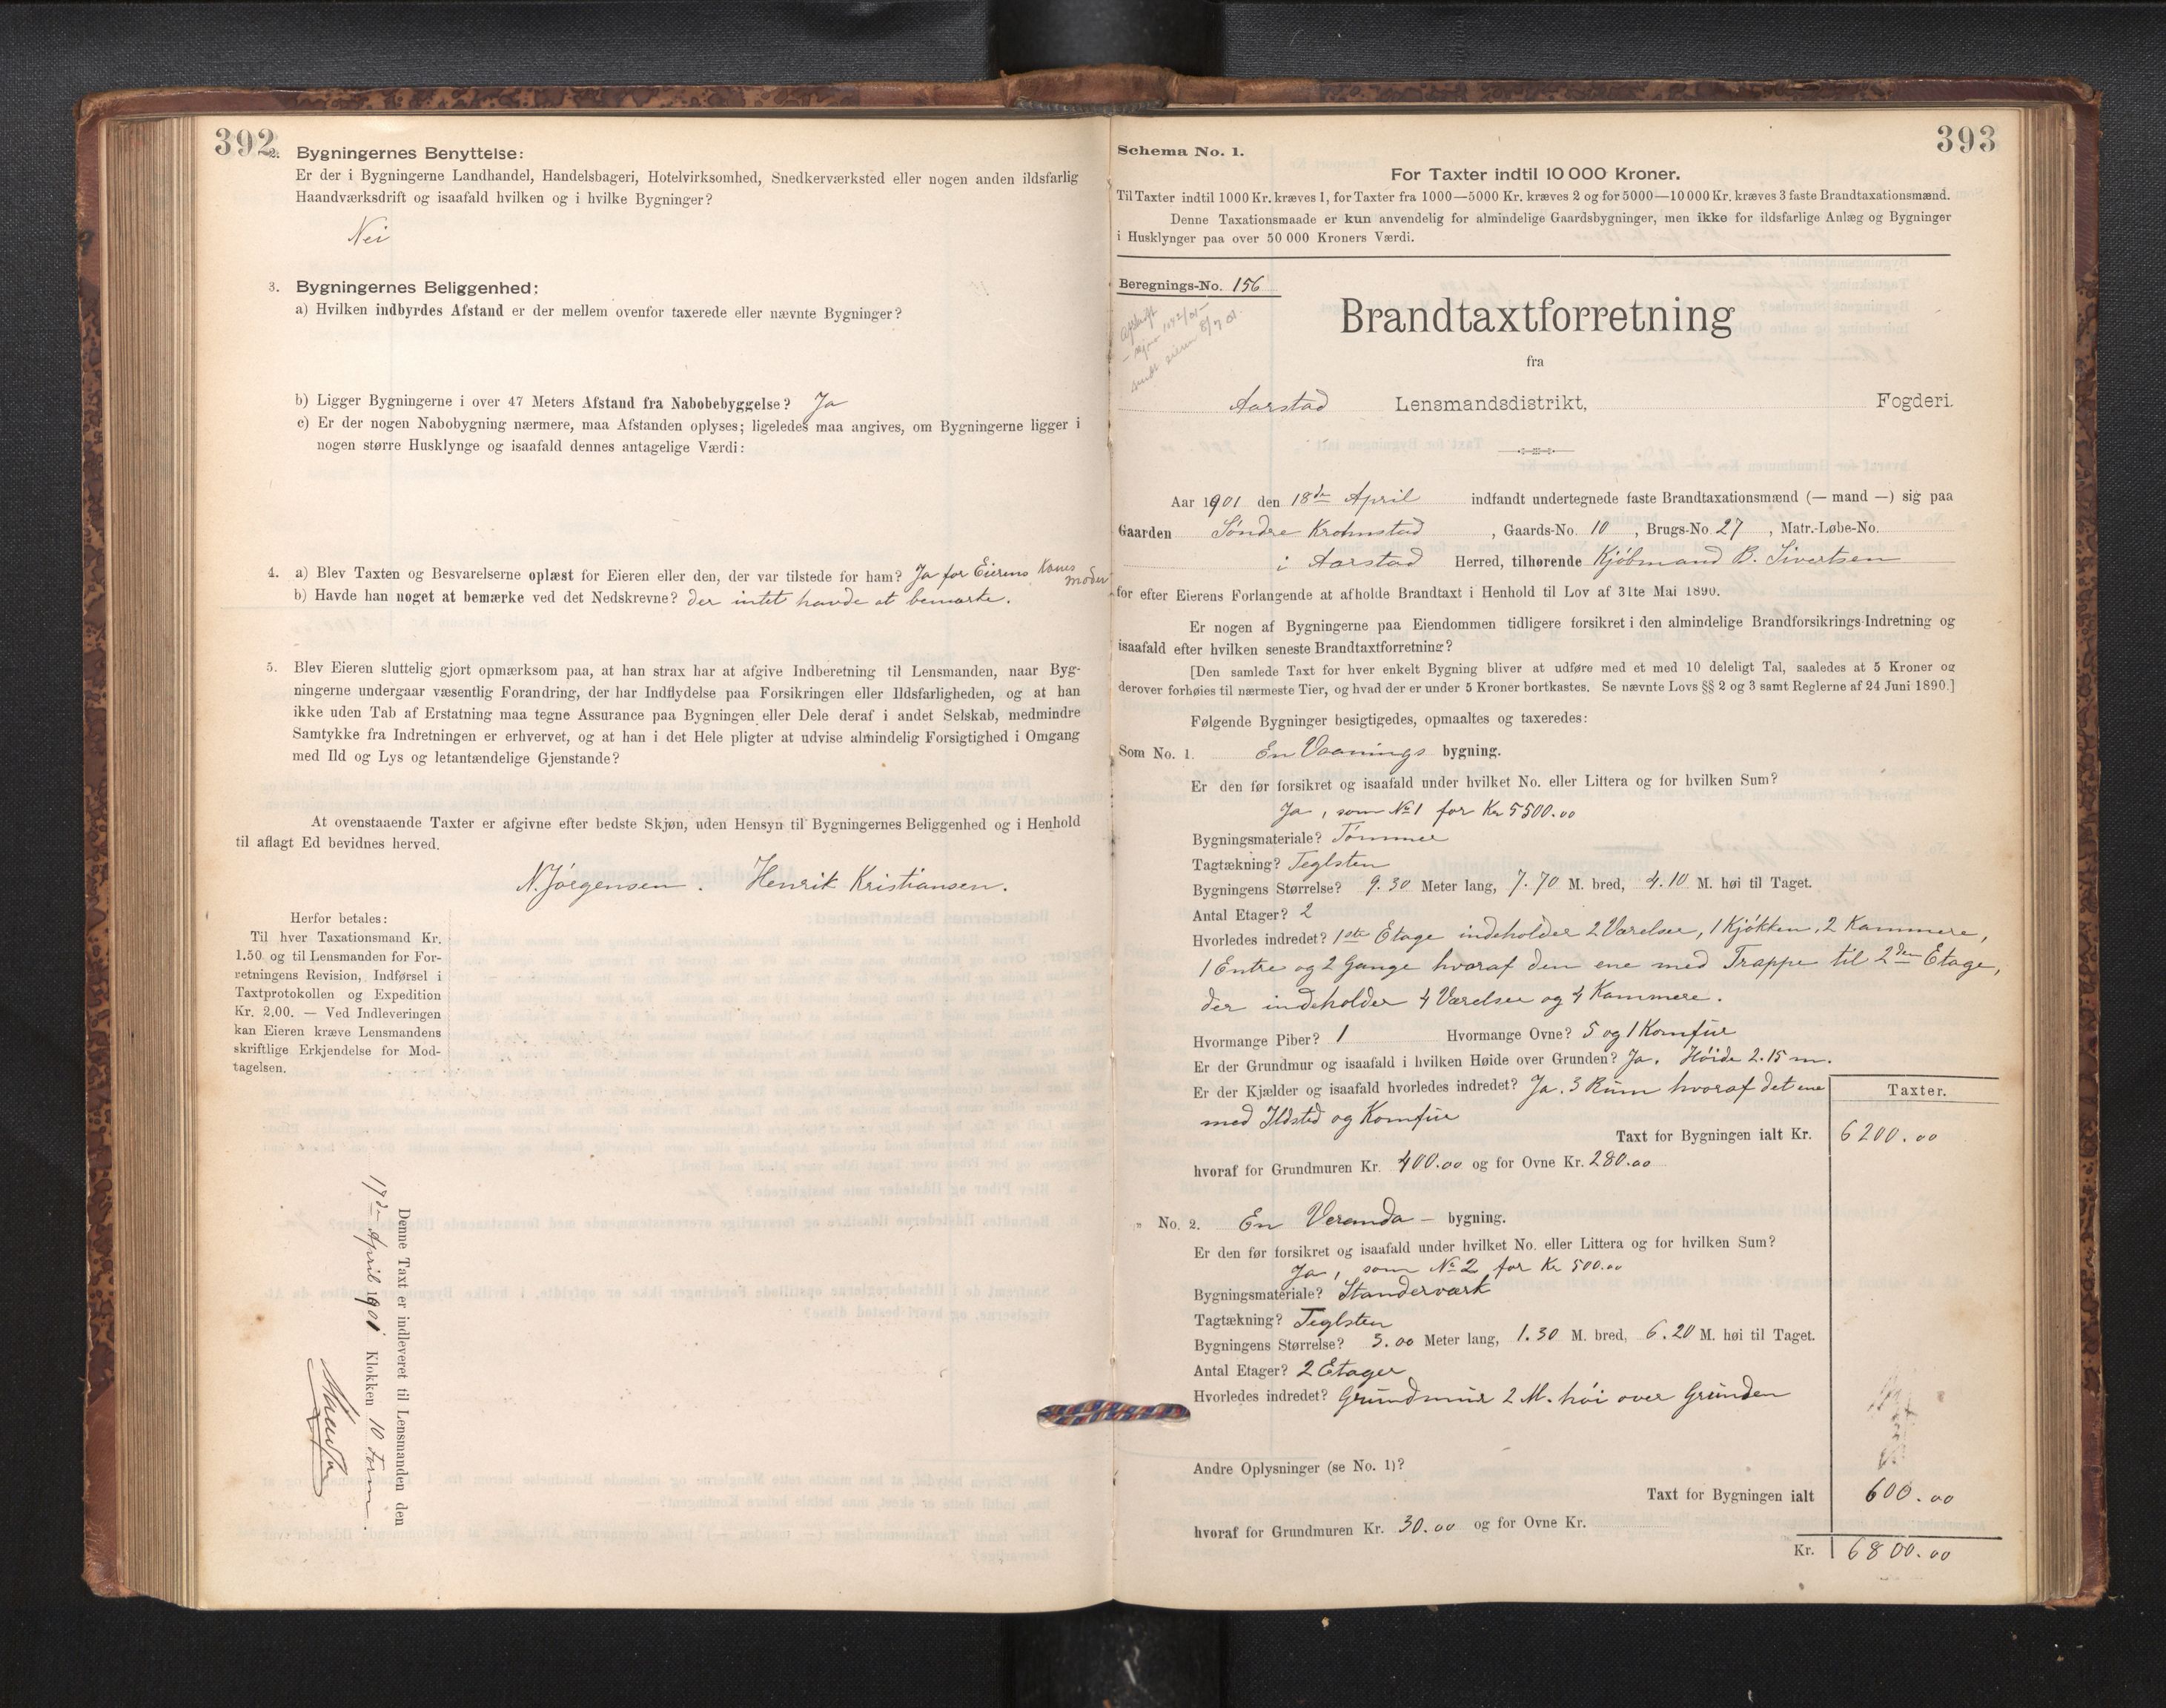 392
2. Bygningernes Benyttelse:
Er der i Bygningerne Landhandel, Handelsbageri, Hotelvirksomhed, Snedkerværksted eller nogen anden ildsfarlig
Haandværksdrift og isaafald hvilken og i hvilke Bygninger?
Nei
3. Bygningernes Beliggenhed:
a) Hvilken indbyrdes Afstand er der mellem ovenfor taxerede eller nævnte Bygninger?
b) Ligger Bygningerne i over 47 Meters Afstand fra Nabobebyggelse? Ja
c) Er der nogen Nabobygning nærmere, maa Afstanden oplyses; ligeledes maa angives, om Bygningerne ligger i
nogen større Husklynge og isaafald dennes antagelige Værdi:
4. a) Blev Taxten og Besvarelserne oplæst for Eieren eller den, der var tilstede for ham? Ja for Eierens Kones
moder
b) Havde han noget at bemærke ved det Nedskrevne? der intet havde at bemærke.
5. Blev Eieren sluttelig gjort opmærksom paa, at han strax har at afgive Indberetning til Lensmanden, naar Byg-
ningerne undergaar væsentlig Forandring, der har Indflydelse paa Forsikringen eller Ildsfarligheden, og at han
ikke uden Tab af Erstatning maa tegne Assurance paa Bygningen eller Dele deraf i andet Selskab, medmindre
Samtykke fra Indretningen er erhvervet, og at han i det Hele pligter at udvise almindelig Forsigtighed i Omgang
med Ild og Lys og letantændelige Gjenstande?
At ovenstaaende Taxter er afgivne efter bedste Skjøn, uden Hensyn til Bygningernes Beliggenhed og i Henhold
til aflagt Ed bevidnes herved.
N. Jørgensen. Henrik Kristiansen.
Herfor betales:
Til hver Taxationsmand Kr.
1.50 og til Lensmanden for For-
retningens Revision, Indførsel i
Taxtprotokollen og Expedition
Kr. 2,00. — Ved Indleveringen
kan Eieren kræve Lensmandens
skriftlige Erkjendelse for Mod-
tagelsen.
Denne Taxt er indleveret til Lensmanden den
17de April 1901 Klokken 10 Form.
393
Schema No. 1.
For Taxter indtil 10 000 Kroner.
Til Taxter indtil 1000 Kr. kræves 1, for Taxter fra 1000—5000 Kr. kræves 2 og for 5000—10 000 Kr. kræves 3 faste Brandtaxationsmænd.
Denne Taxationsmaade er kun anvendelig for almindelige Gaardsbygninger, men ikke for ildsfarlige Anlæg og Bygninger
i Husklynger paa over 50 000 Kroners Værdi.
Beregnings-No. 156
Brandtaxtforretning
fra
Aarstad Lensmandsdistrikt, Fogderi.
Aar 1901 den 18de April indfandt undertegnede faste Brandtaxationsmænd (— mand —) sig paa
Gaarden Søndre Krohnstad, Gaards-No. 10, Brugs-No. 27, Matr.-Løbe-No.
i Aarstad Herred, tilhørende Kjøbmand B. Sivertsen
for efter Eierens Forlangende at afholde Brandtaxt i Henhold til Lov af 31te Mai 1890.
Er nogen af Bygningerne paa Eiendommen tidligere forsikret i den almindelige Brandforsikrings-Indretning og
isaafald efter hvilken seneste Brandtaxtforretning?
[Den samlede Taxt for hver enkelt Bygning bliver at udføre med et med 10 deleligt Tal, saaledes at 5 Kroner og
derover forhøies til nærmeste Tier, og hvad der er under 5 Kroner bortkastes. Se nævnte Lovs §§ 2 og 3 samt Reglerne af 24 Juni 1890.]
Følgende Bygninger besigtigedes, opmaaltes og taxeredes:
Som No. 1. En Vaanings bygning.
Er den før forsikret og isaafald under hvilket No. eller Littera og for hvilken Sum?
Ja, som No 1 for Kr 5500.00
Bygningsmateriale? Tømmer
Tagtækning? Teglsten
Bygningens Størrelse? 9.30 Meter lang, 7.70 M. bred, 4.10 M. høi til Taget.
Antal Etager? 2
Hvorledes indredet? 1ste Etage indeholder 2 Værelser, 1 Kjøkken, 2 Kammere,
1 Entre og 2 Gange hvoraf den ene med Trappe til 2den Etage,
der indeholder 4 Værelser og 4 Kammere.
Hvormange Piber? 1 Hvormange Ovne? 5 og 1 Komfur
Er der Grundmur og isaafald i hvilken Høide over Grunden? Ja. Høide 2.15 m.
Er der Kjælder og isaafald hvorledes indredet? Ja. 3 Rum hvoraf det ene
Taxter.
med Ildsted og Komfur
Taxt for Bygningen ialt Kr. 6200.00
hvoraf for Grundmuren Kr. 400.00 og for Ovne Kr. 280.00
" No. 2. En Veranda – bygning.
Er den før forsikret og isaafald under hvilket No. eller Littera og for hvilken Sum?
Ja, som No 2 for Kr 500.00
Bygningsmateriale? Standerværk
Tagtækning? Teglsten
Bygningens Størrelse? 3.00 Meter lang, 1.30 M. bred, 6.20 M. høi til Taget.
Antal Etager? 2 Etager
Hvorledes indredet? Grundmur 2 M. høi over Grunden
Andre Oplysninger (se No. 1)?
Taxt for Bygningen ialt 600.00
hvoraf for Grundmuren Kr. 30.00 og for Ovne Kr.
Kr. 6800.00